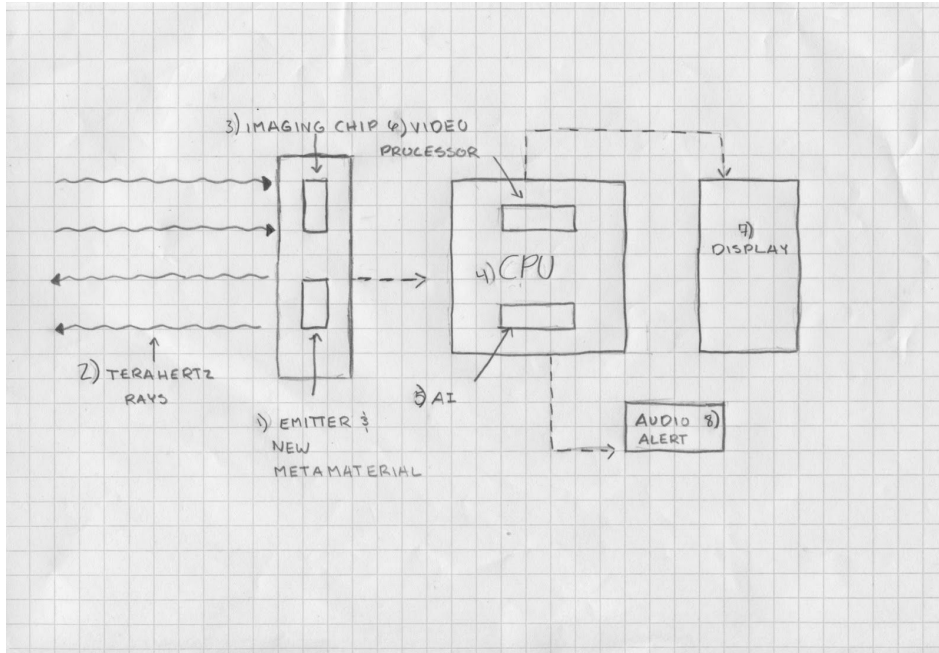 3) IMAGING CHIP 6) VIDEO
PROCESSOR
4) CPU
7)
DISPLAY
2) TERAHERTZ
RAYS
5) AI
1) EMITTER &
NEW
METAMATERIAL
AUDIO 8)
ALERT